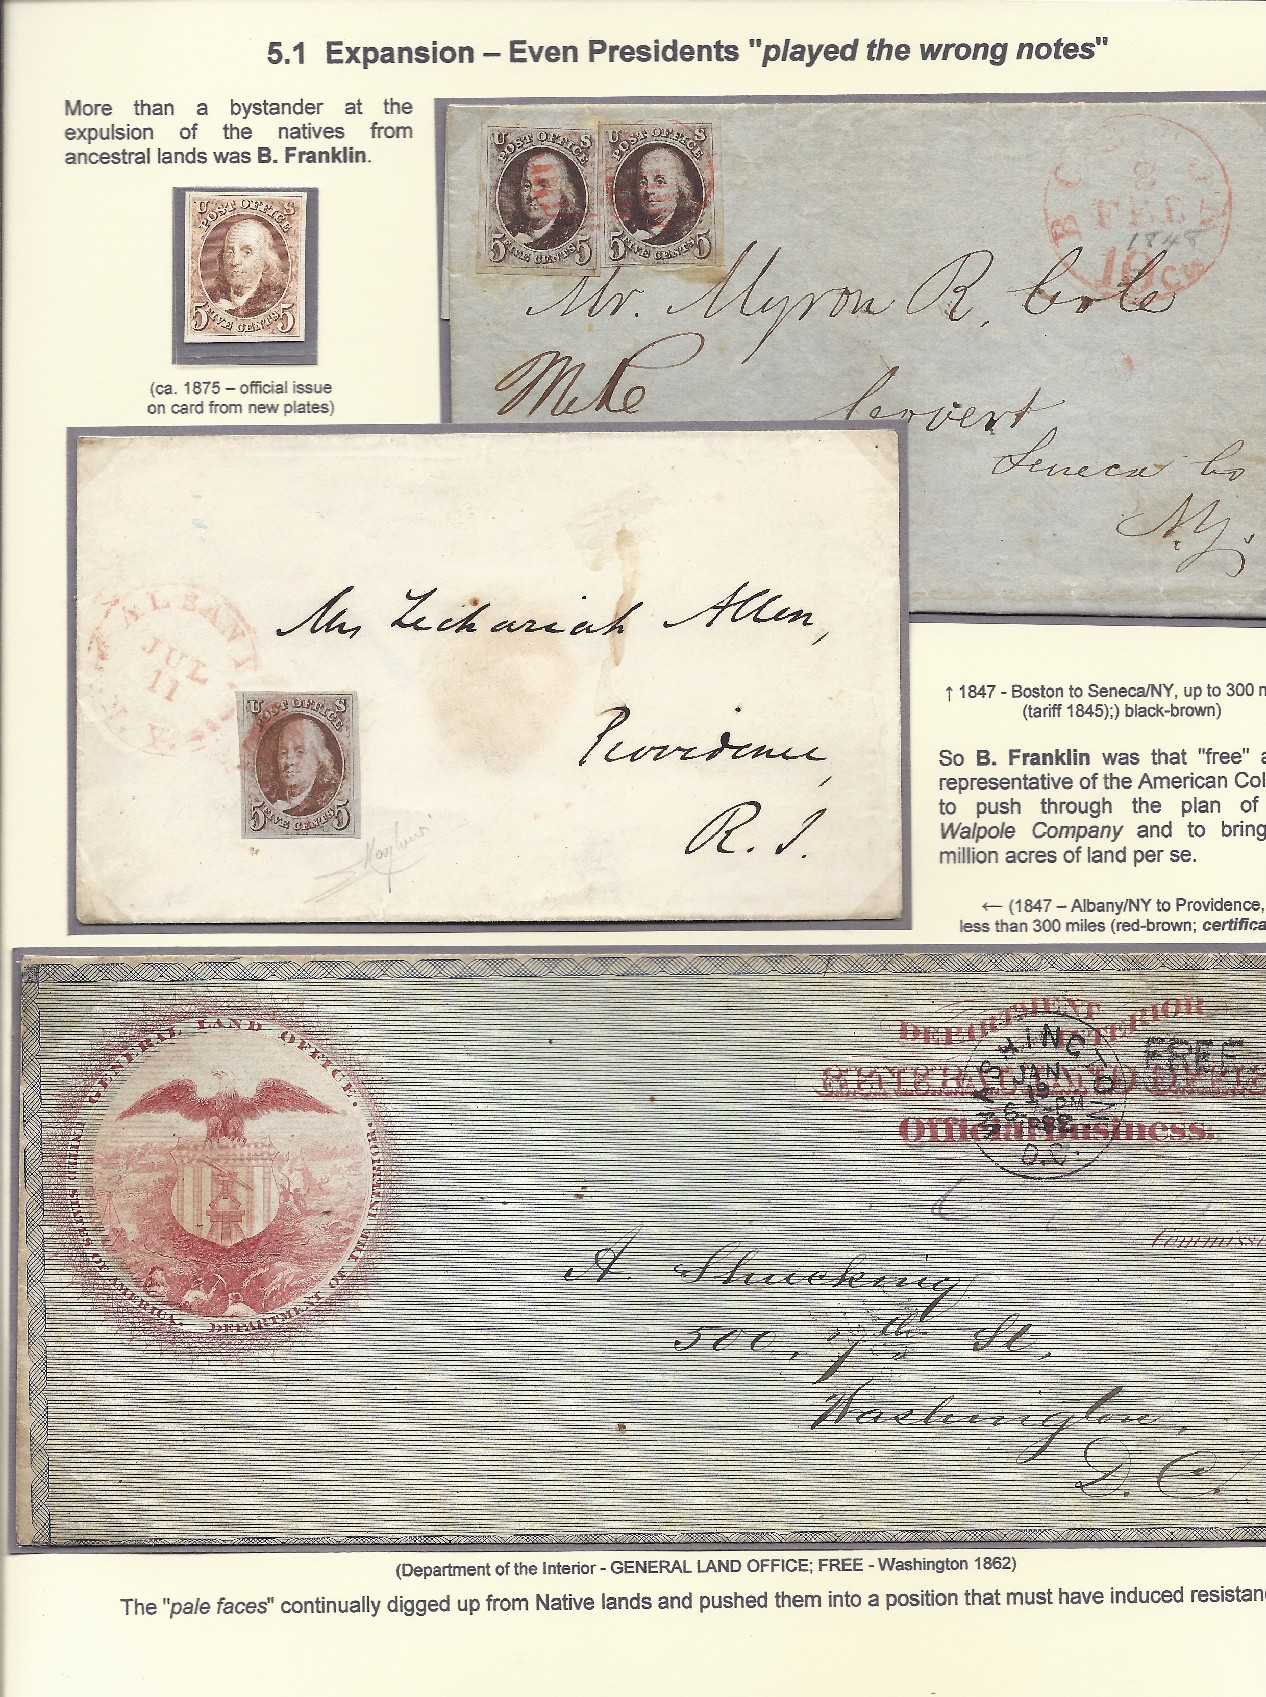 5.1 Expansion – Even Presidents "played the wrong notes"
More than a bystander at the
expulsion of the natives from
ancestral lands was B. Franklin.
U S
POST OFFICE
5 5
FIVE CENTS
(ca. 1875 – official issue
on card from new plates)
U S
POST OFFICE
5 5
FIVE CENTS
U S
POST OFFICE
5 5
FIVE CENTS
BOSTON
8
FEB
1848
10 cts
Mr. Myron R. Cole
Covert
Seneca Co
N.Y.
ALBANY
JUL
11
N.Y.
U S
POST OFFICE
5 5
FIVE CENTS
Zechariah Allen,
Providence,
R. I.
↑ 1847 - Boston to Seneca/NY, up to 300
(tariff 1845);) black-brown)
So B. Franklin was that "free"
representative of the American Col
to push through the plan of
Walpole Company and to bring
million acres of land per se.
← (1847 – Albany/NY to Providence,
less than 300 miles (red-brown; certifica
UNITED STATES OF AMERICA. GENERAL LAND OFFICE. DEPARTMENT OF THE INTERIOR.
DEPARTMENT INTERIOR
GENERAL LAND OFFIC
Official Business.
WASHINGTON
JAN
D.C.
FREE
Commissi
A. Shucking
500, 7th St.
Washington,
D. C.
(Department of the Interior - GENERAL LAND OFFICE; FREE - Washington 1862)
The "pale faces" continually digged up from Native lands and pushed them into a position that must have induced resistan